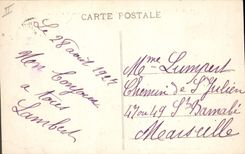 II
CARTE POSTALE
Le 28 août 1924
Mon
a tous
Lambert
Mme Lumpert
Chemin de St Julien
47 ou 49 St Barnabé
Marseille